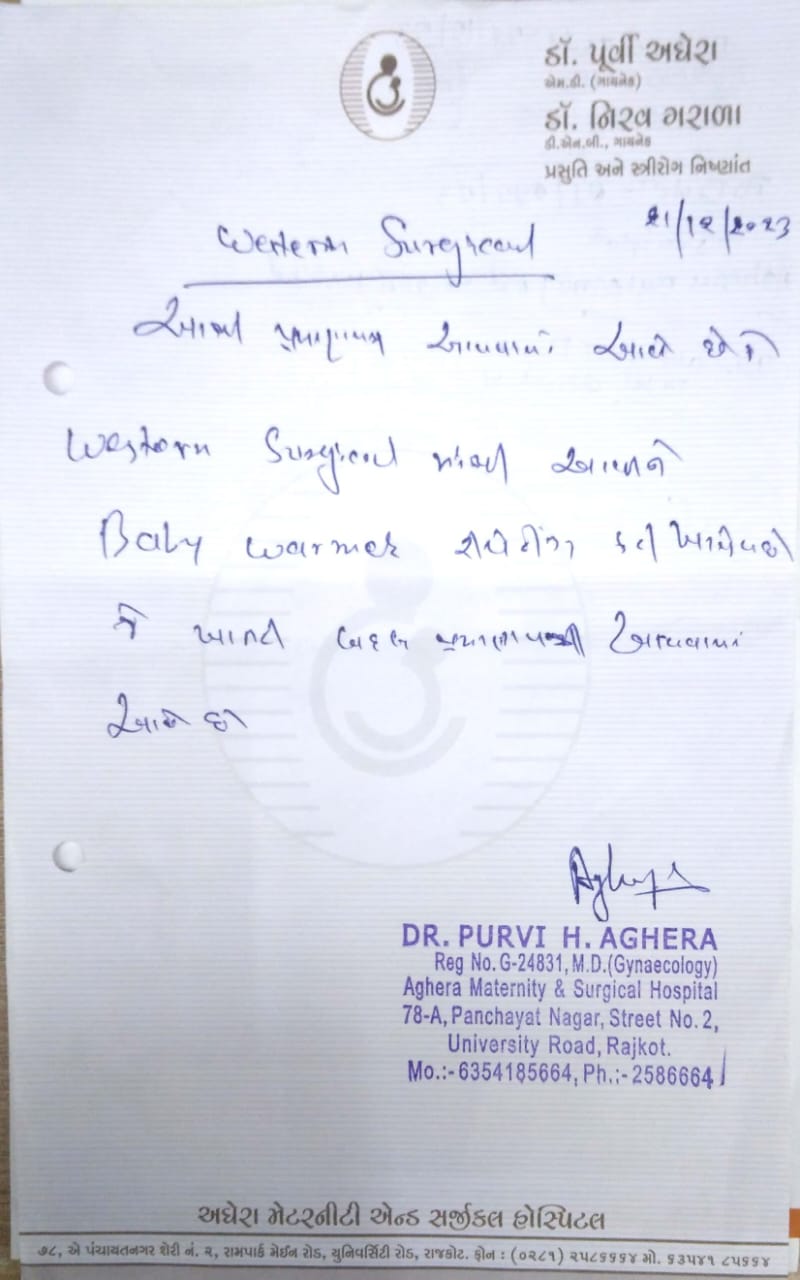 ડૉ. પૂર્વી અઘેરા
એમ.ડી. (ગાયનેક)
ડૉ. નિરવ ગરાળા
ડી.એન.બી., ગાયનેક
પ્રસુતિ અને સ્ત્રીરોગ નિષ્ણાંત
૨૧/૧૨/૨૦૨૩
Western Surgical
આથી પ્રમાણપત્ર આપવામાં આવે છે કે
Western Surgical આપને
Baby warmer કરી આપેલ છે
જે ખાતરી બદલ પ્રમાણપત્ર આપવામાં
આવે છે
DR. PURVI H. AGHERA
Reg No. G-24831, M.D.(Gynaecology)
Aghera Maternity & Surgical Hospital
78-A, Panchayat Nagar, Street No. 2,
University Road, Rajkot.
Mo.:- 6354185664, Ph.:- 2586664
અઘેરા મેટરનીટી એન્ડ સર્જીકલ હોસ્પિટલ
૭૮, એ પંચાયતનગર શેરી નં. ૨, રામપાર્ક મેઈન રોડ, યુનિવર્સિટી રોડ, રાજકોટ. ફોન : (૦૨૮૧) ૨૫૮૬૬૬૪ મો. ૬૩૫૪૧ ૮૫૬૬૪